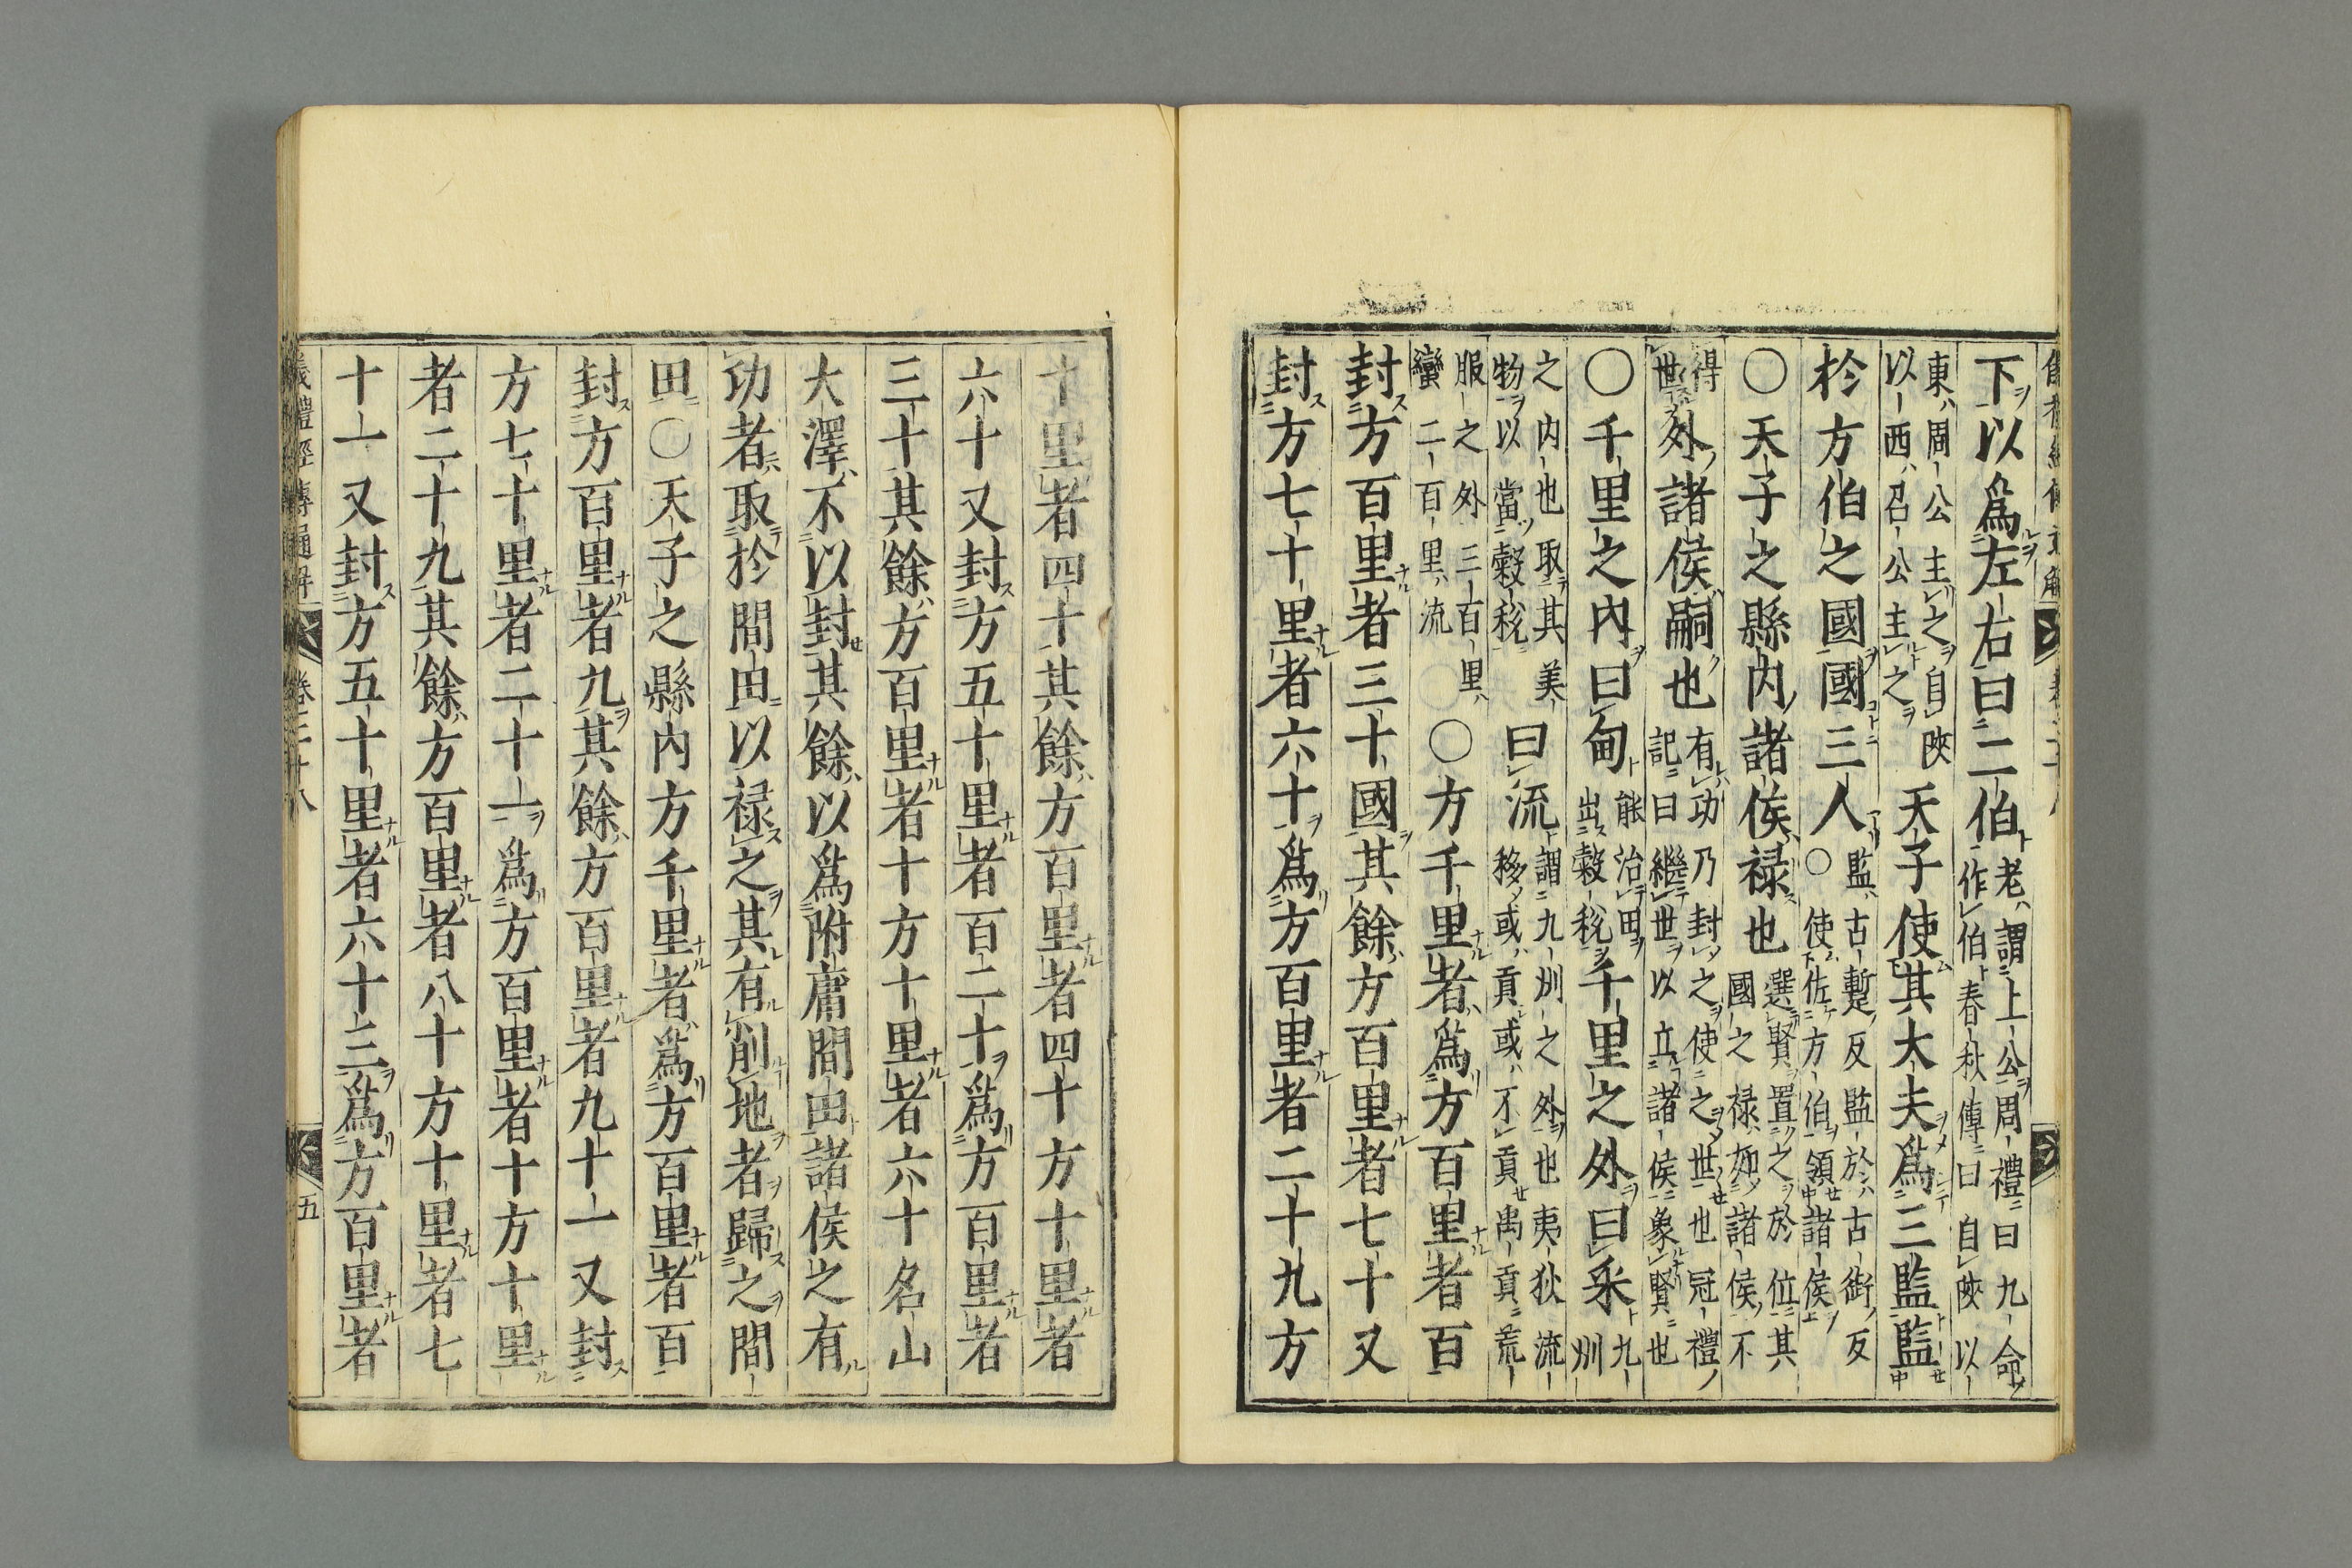 下以爲左右曰二伯老謂上公周禮曰九命作伯春秋傳曰自陜以
東周公主之自陜以西召公主之天子使其大夫爲三監監
於方伯之國國三人監古蹔反監於古銜反○使佐方伯領諸侯
○天子之縣内諸侯祿也選賢置之於位其國之祿如諸侯不
得世外諸侯嗣也有功乃封之使之世也冠禮記曰繼世以立諸侯象賢也
○千里之內曰甸能治田出穀稅千里之外曰采九州
之内也取其美物以當穀稅曰流謂九州之外也夷狄流移或貢或不貢禹貢荒
服之外三百里蠻二百里流○方千里者爲方百里者百
封方百里者三十國其餘方百里者七十又
封方七十里者六十爲方百里者二十九方
十里者四十其餘方百里者四十方十里者
六十又封方五十里者百二十爲方百里者
三十其餘方百里者十方十里者六十名山
大澤不以封其餘以爲附庸間田諸侯之有
功者取於間田以祿之其有削地者歸之間
田○天子之縣內方千里者爲方百里者百
封方百里者九其餘方百里者九十一又封
方七十里者二十一爲方百里者十方十里
者二十九其餘方百里者八十方十里者七
十一又封方五十里者六十三爲方百里者
儀禮經傳通解 卷三十八 五